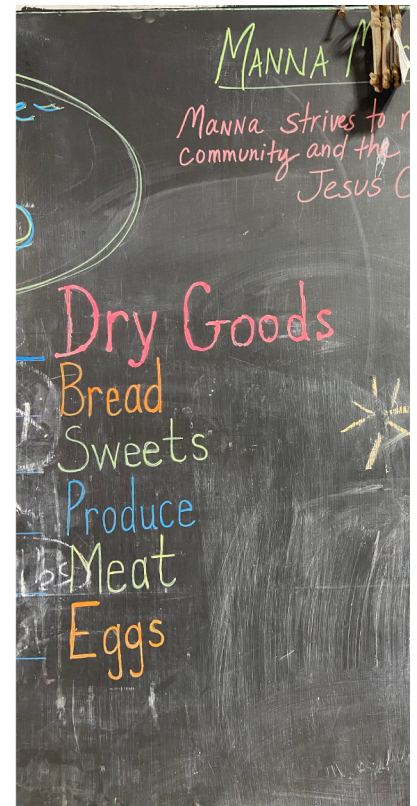 Manna
Manna strives to
community and the
Jesus
Dry Goods
Bread
Sweets
Produce
Meat
Eggs